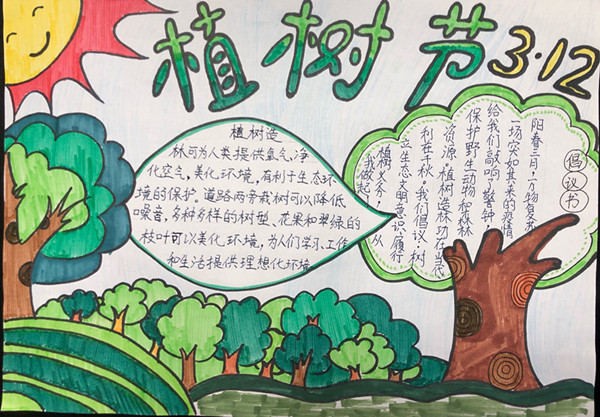 植树节 3·12
植树造
林可为人类提供氧气,净
化空气,美化环境,有利于生态环
境的保护。道路两旁栽树可以降低
噪音,多种多样的树型、花果和翠绿的
枝叶可以美化环境,为人们学习、工作
和生活提供理想化环境
倡议书
阳春三月,万物复苏
一场突如其来的疫情
给我们敲响了警钟!
保护野生动物和森林
资源,植树造林功在当代
利在千秋,我们倡议:树
立生态文明意识,履行
植树义务,从
我做起!